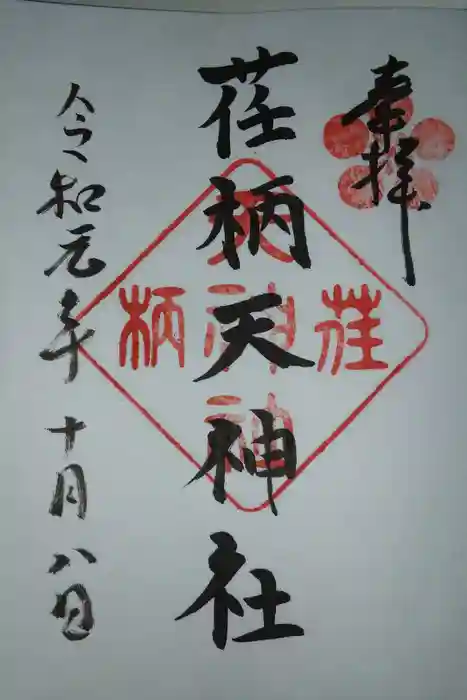 奉拝
荏柄天神社
荏柄天神
令和元年十月八日